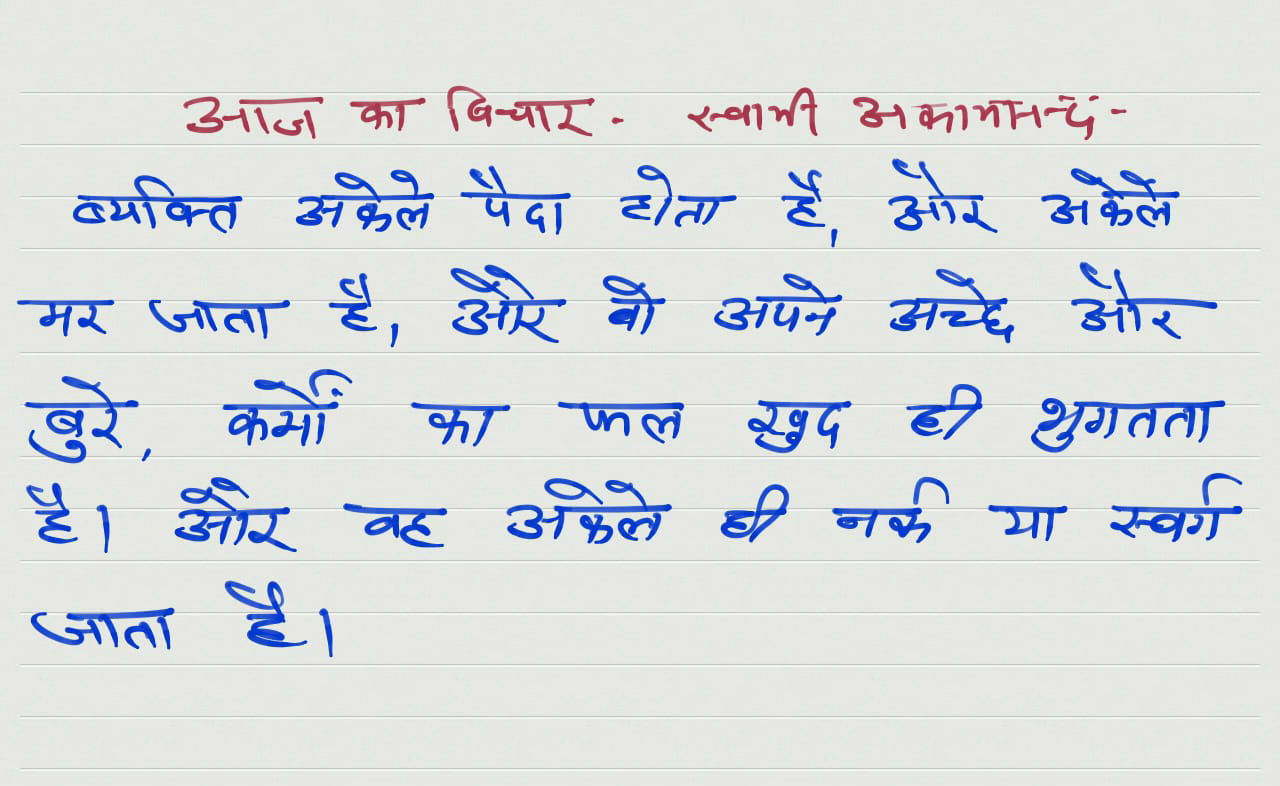 आज का विचार. स्वामी अकामानन्द -
व्यक्ति अकेले पैदा होता है, और अकेले
मर जाता है, और वो अपने अच्छे और
बुरे, कर्मों का फल खुद ही भुगतता
है। और वह अकेले ही नर्क या स्वर्ग
जाता है।